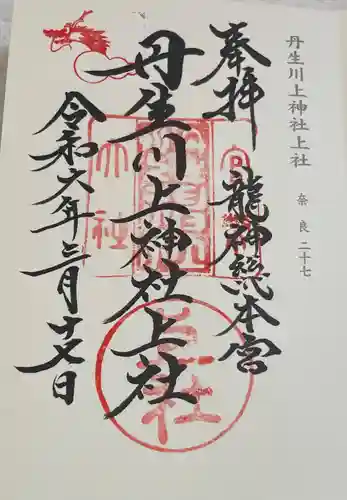 丹生川上神社上社
奈良二十七
奉拝
龍神総本宮
丹生川上神社上社
令和六年三月十七日